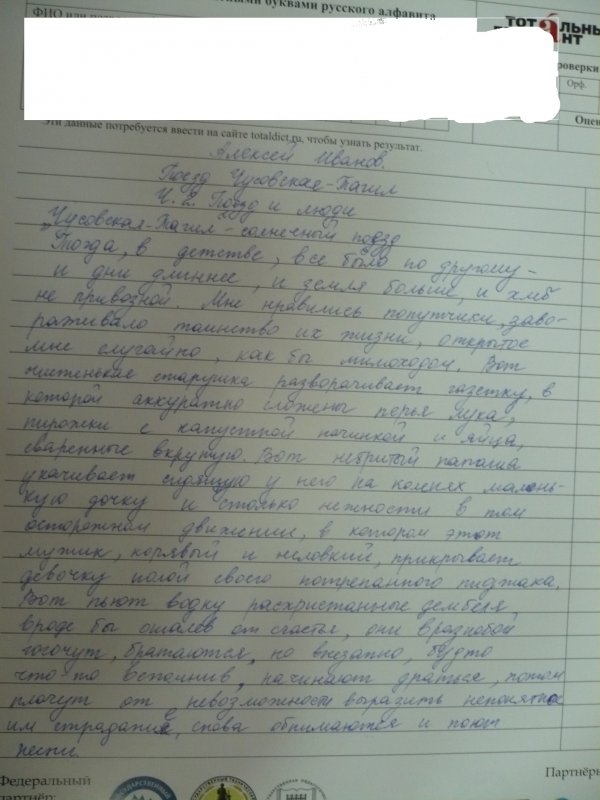 ными буквами русского алфавита
ФИО или
ТОТАЛЬНЫ
НТ
роверки
Орф.
Оцен
Эти данные потребуется ввести на сайте totaldict.ru, чтобы узнать результат.
Алексей Иванов.
Поезд Чусовская-Тагил
Ч. 2. Поезд и люди
"Чусовская-Тагил" - солнечный поезд
Тогда, в детстве, все было по другому -
и дни длиннее, и земля больше, и хлеб
не привозной. Мне нравились попутчики, заво-
раживало таинство их жизни, открытое
мне случайно, как бы мимоходом. Вот
чистенькая старушка разворачивает газетку, в
которой аккуратно сложены перья лука,
пирожки с капустной начинкой и яйца,
сваренные вкрутую. Вот небритый папаша
укачивает сидящую у него на коленях малень-
кую дочку и столько нежности в том
осторожном движении, в котором этот
мужик, корявый и неловкий, прикрывает
девочку полой своего потрепанного пиджака.
Вот пьют водку расхристанные дембеля,
вроде бы ошалев от счастья, они вразнобой
гогочут, братаются, но внезапно, будто
что-то вспомнив, начинают драться, потом
плачут от невозможности выразить непонятное
им страдание, снова обнимаются и поют
песни.
Федеральный
партнёр:
Партнёры